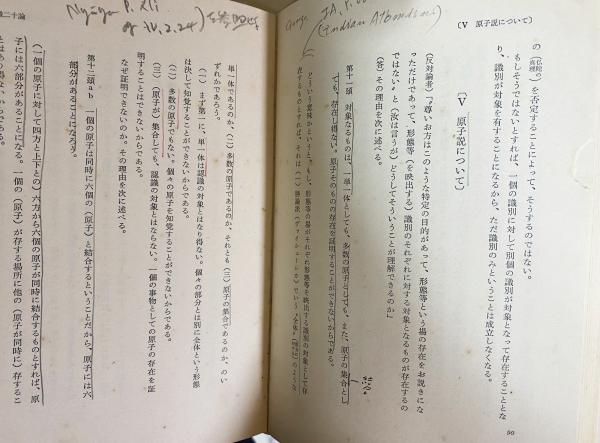 〔Ⅴ 原子説について〕
の(仏陀の真理)を否定することによって、そうするのではない。
もしそうではないとすれば、一個の識別に対して別個の識別が対象となって存在することとな
り、識別が対象を有することになるから、ただ識別のみということは成立しなくなる。
〔Ⅴ 原子説について〕
(反対論者)「尊いお方はこのような特定の目的があって、形態等という場の存在をお説きにな
っただけであって、形態等(を映出する)識別のそれぞれに対する対象となるものが存在するの
ではない」と(汝は言うが)どうしてそういうことが理解できるのか」
(答)その理由を次に述べる。
第十一頌 対象なるものは、一単一体としても、多数の原子としても、また、原子の集合とし
ても、存在し得ない。原子そのものの存在を証明することができないからである。
どういう意味かというと、もし、形態等の場がそれぞれ形態等を映出する識別の対象として存
在するものとすれば、それは(一)勝論派(ヴァイシェーシカ)でいう「全体」
50
Nyāya
IV.2.24)を参照せよ
(Indian Atomism)
単一体であるのか、(二)多数の原子であるのか、それとも(三)原子の集合であるのか、のい
ずれかであろう。
(一)まず第一に、単一体は認識の対象とはなり得ない。個々の部分とは別に全体という形態
は決して知覚することができないからである。
(二)多数の原子でもない。個々の原子を知覚することができないからである。
(三)(原子が)集合しても、認識の対象とはならない。一個の事物としての原子の存在を証
明することはできないからである。
なぜ証明できないのか。その理由を次に述べる。
第十二頌ab 一個の原子は同時に六個の(原子)と結合するということだから、原子には六
部分があることになろう。
(一個の原子に対して四方と上下との)六方から六個の原子が同時に結合するものとすれば、原
子には六部分があることになる。一個の(原子)が存する場所に他の(原子が同時に)存するこ